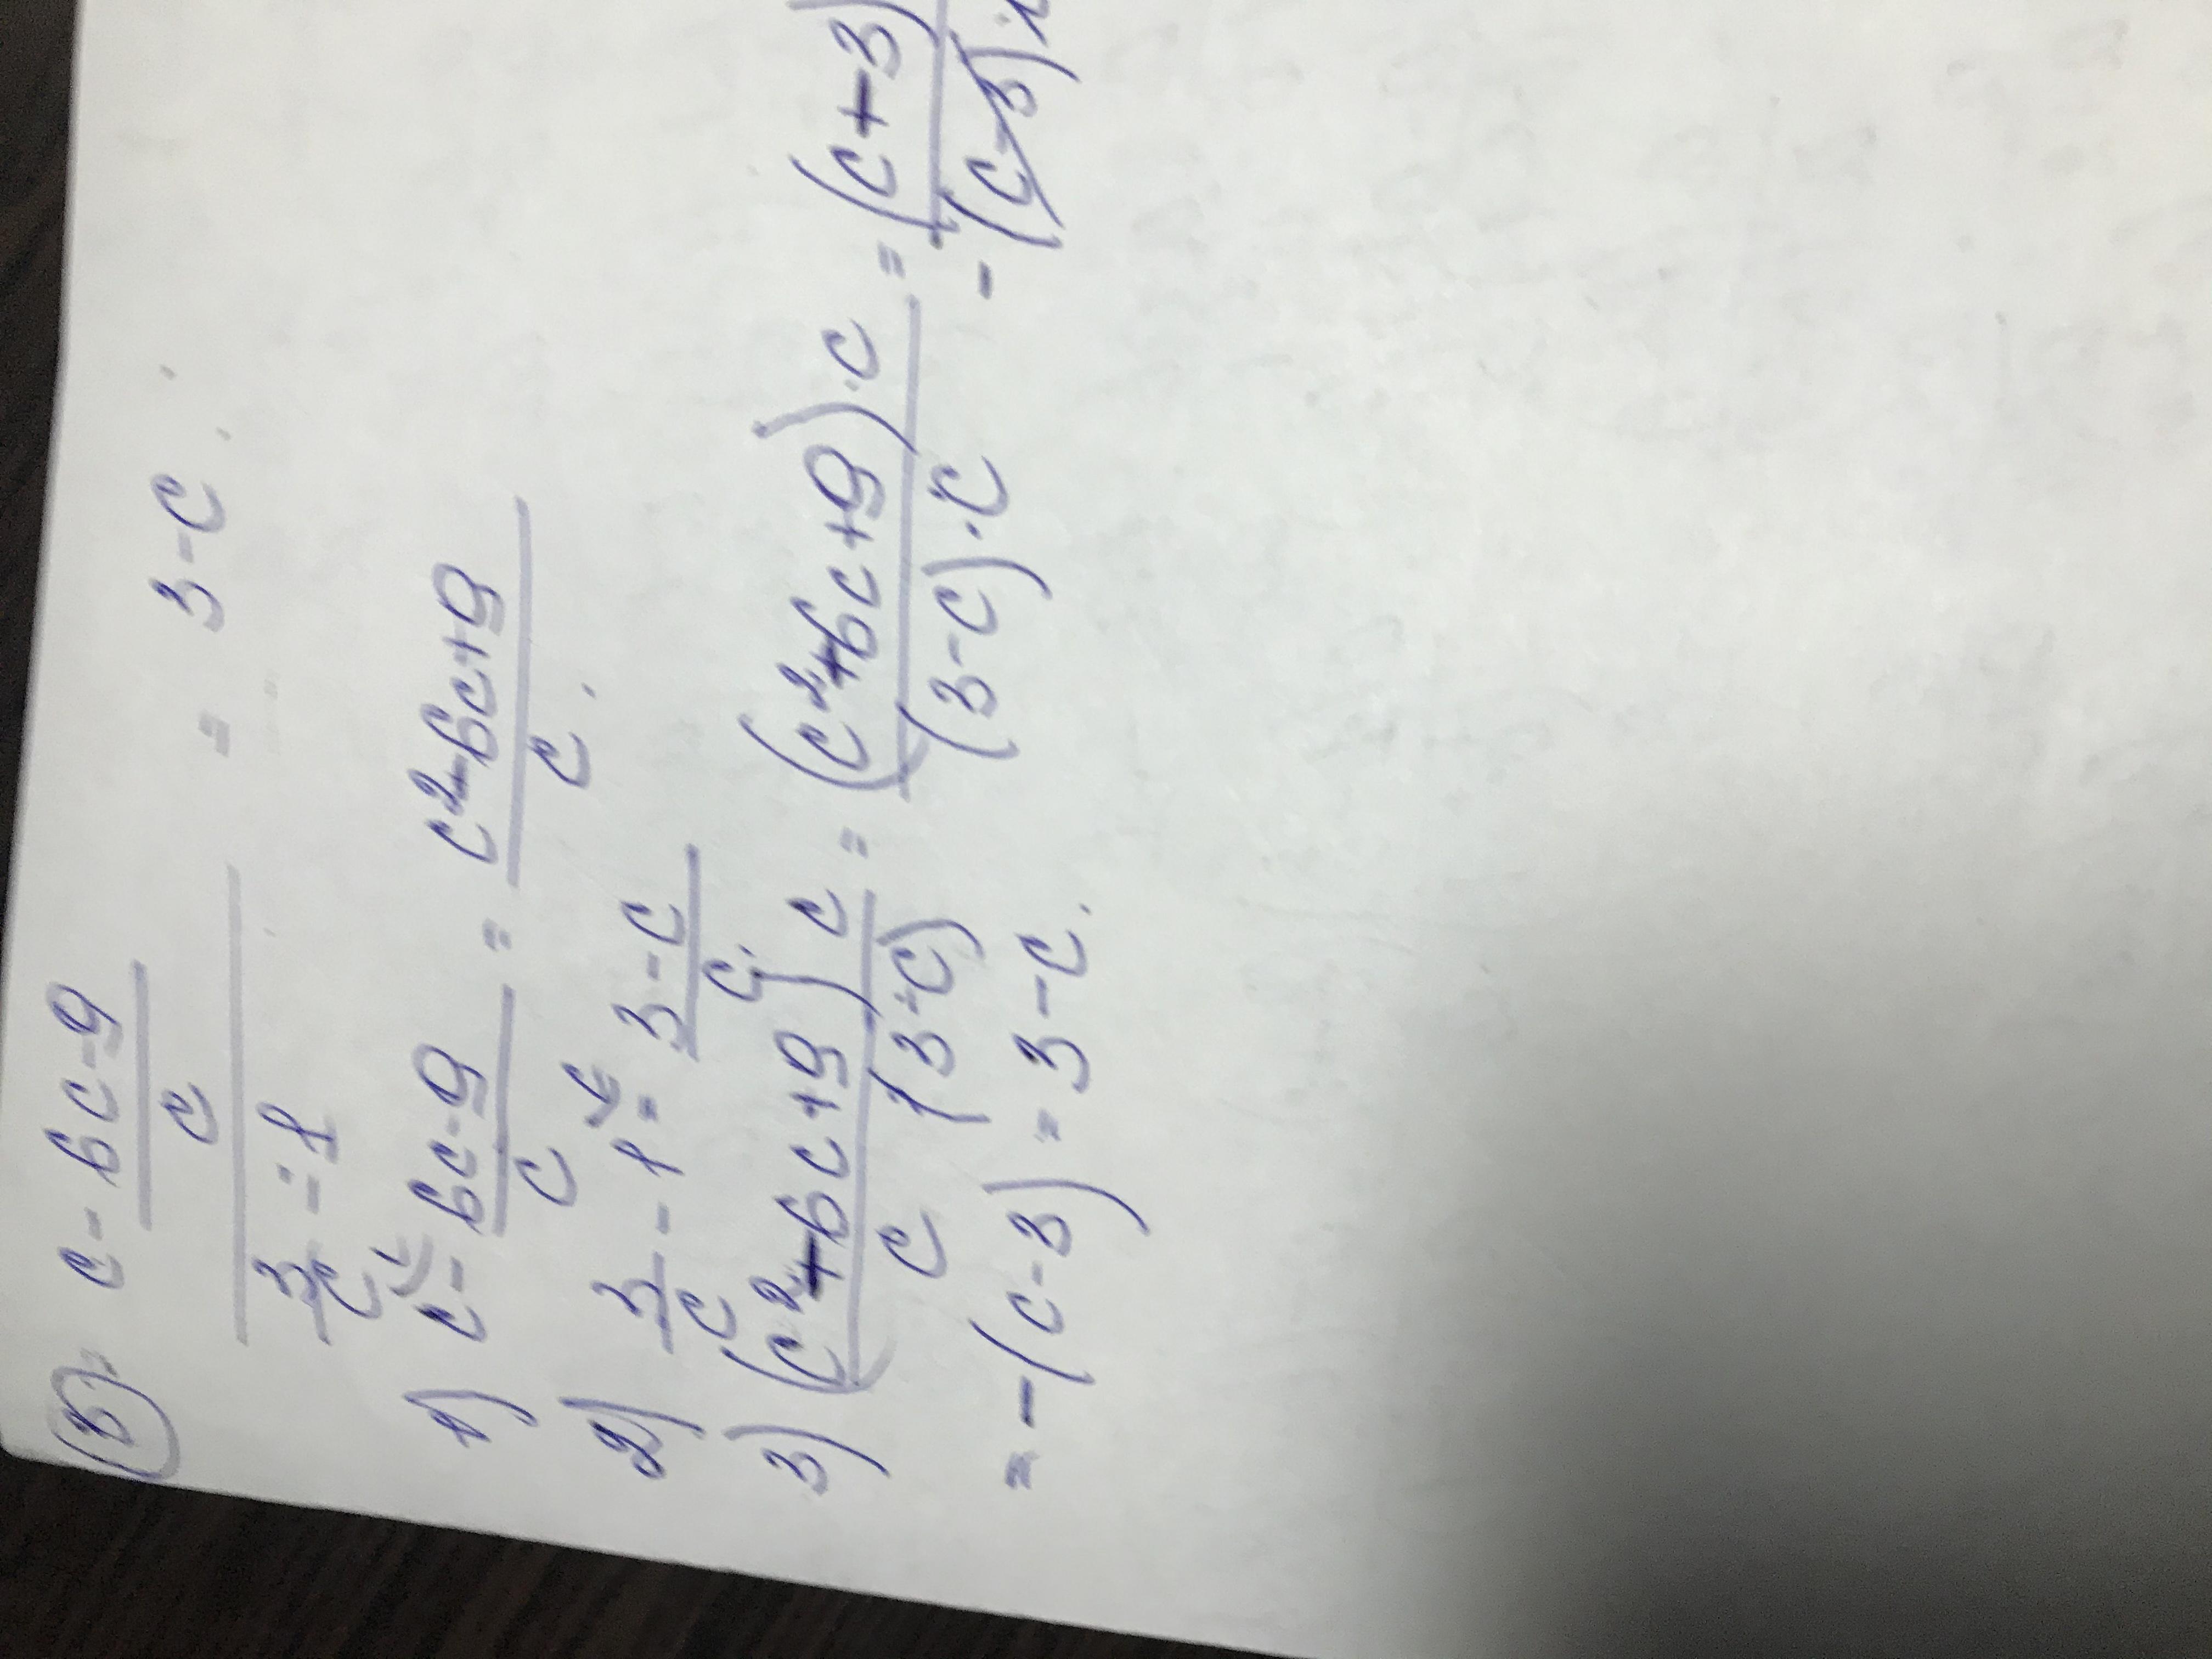 в) (c - (6c-9)/c) / (3/c - 1) = 3-c.
1) c - (6c-9)/c = (c²-6c+9)/c.
2) 3/c - 1 = (3-c)/c.
3) (c²+6c+9) c / c (3-c) = (c²+6c+9)·c / (3-c)·c = (c+3) / -(c-3)
= -(c-3) = 3-c.